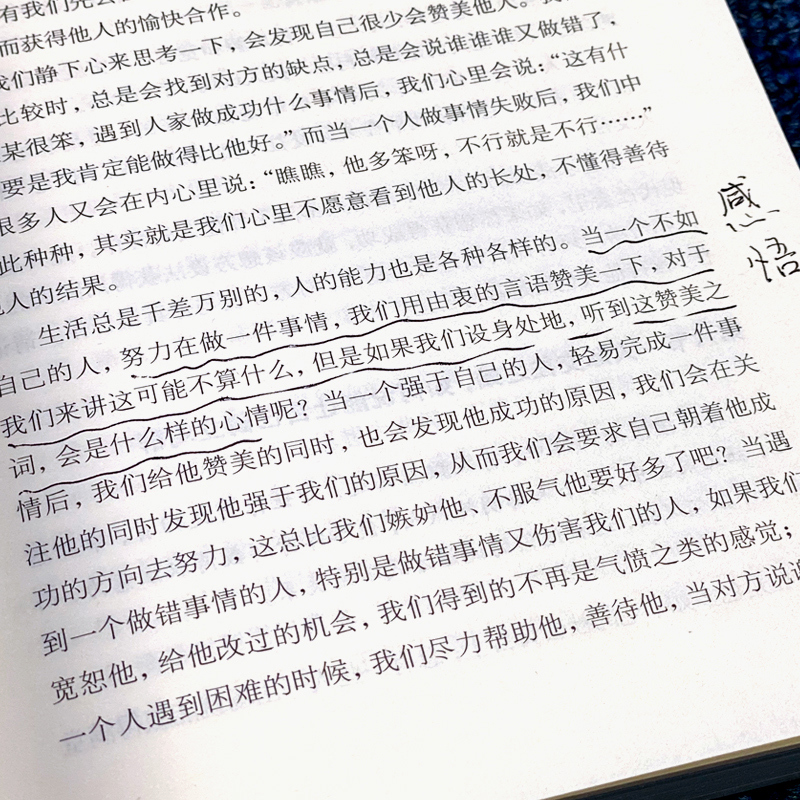 有我们先去
而获得他人的愉快合作。
我们静下心来思考一下，会发现自己很少会赞美他人。我
比较时，总是会找到对方的缺点，总是会说谁谁谁又做错了，
某很笨，遇到人家做成功什么事情后，我们心里会说：“这有什
要是我肯定能做得比他好。”而当一个人做事情失败后，我们中
很多人又会在内心里说：“瞧瞧，他多笨呀，不行就是不行……”
此种种，其实就是我们心里不愿意看到他人的长处，不懂得善待
他人的结果。
生活总是千差万别的，人的能力也是各种各样的。当一个不如
自己的人，努力在做一件事情，我们用由衷的言语赞美一下，对于
我们来讲这可能不算什么，但是如果我们设身处地，听到这赞美之
词，会是什么样的心情呢？当一个强于自己的人，轻易完成一件事
情后，我们给他赞美的同时，也会发现他成功的原因，我们会在关
注他的同时发现他强于我们的原因，从而我们会要求自己朝着他成
功的方向去努力，这总比我们嫉妒他、不服气他要好多了吧？当遇
到一个做错事情的人，特别是做错事情又伤害我们的人，如果我们
宽恕他，给他改过的机会，我们得到的不再是气愤之类的感觉；
一个人遇到困难的时候，我们尽力帮助他，善待他，当对方说谢
感
悟